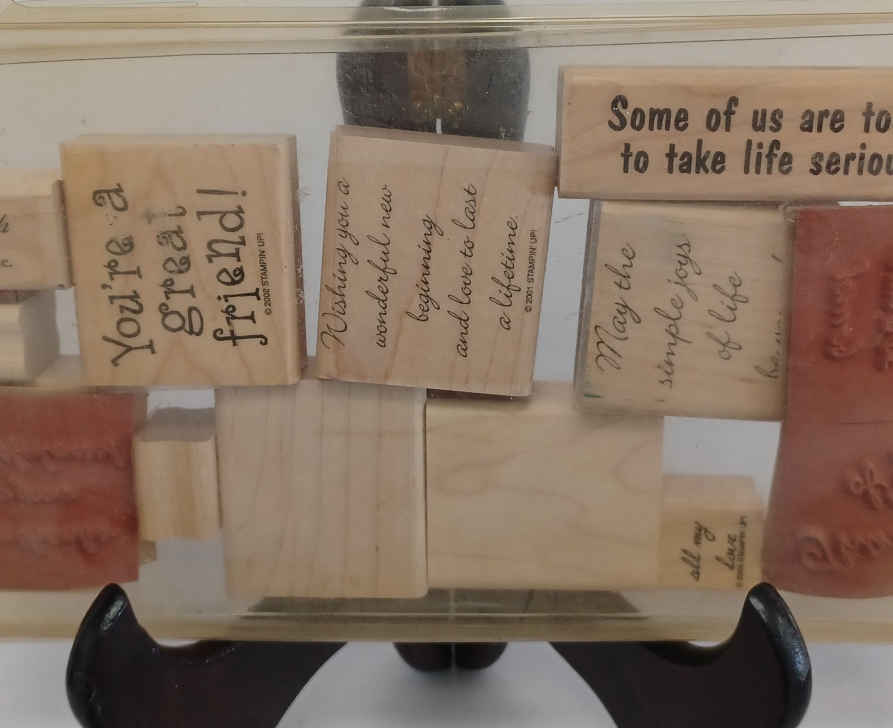 Some of us are to
to take life seriou
You're a
great
friend!
© 2002 STAMPIN' UP!
Wishing you a
wonderful new
beginning
and love to last
a lifetime.
© 2001 STAMPIN' UP!
May the
simple joys
of life
all my
love